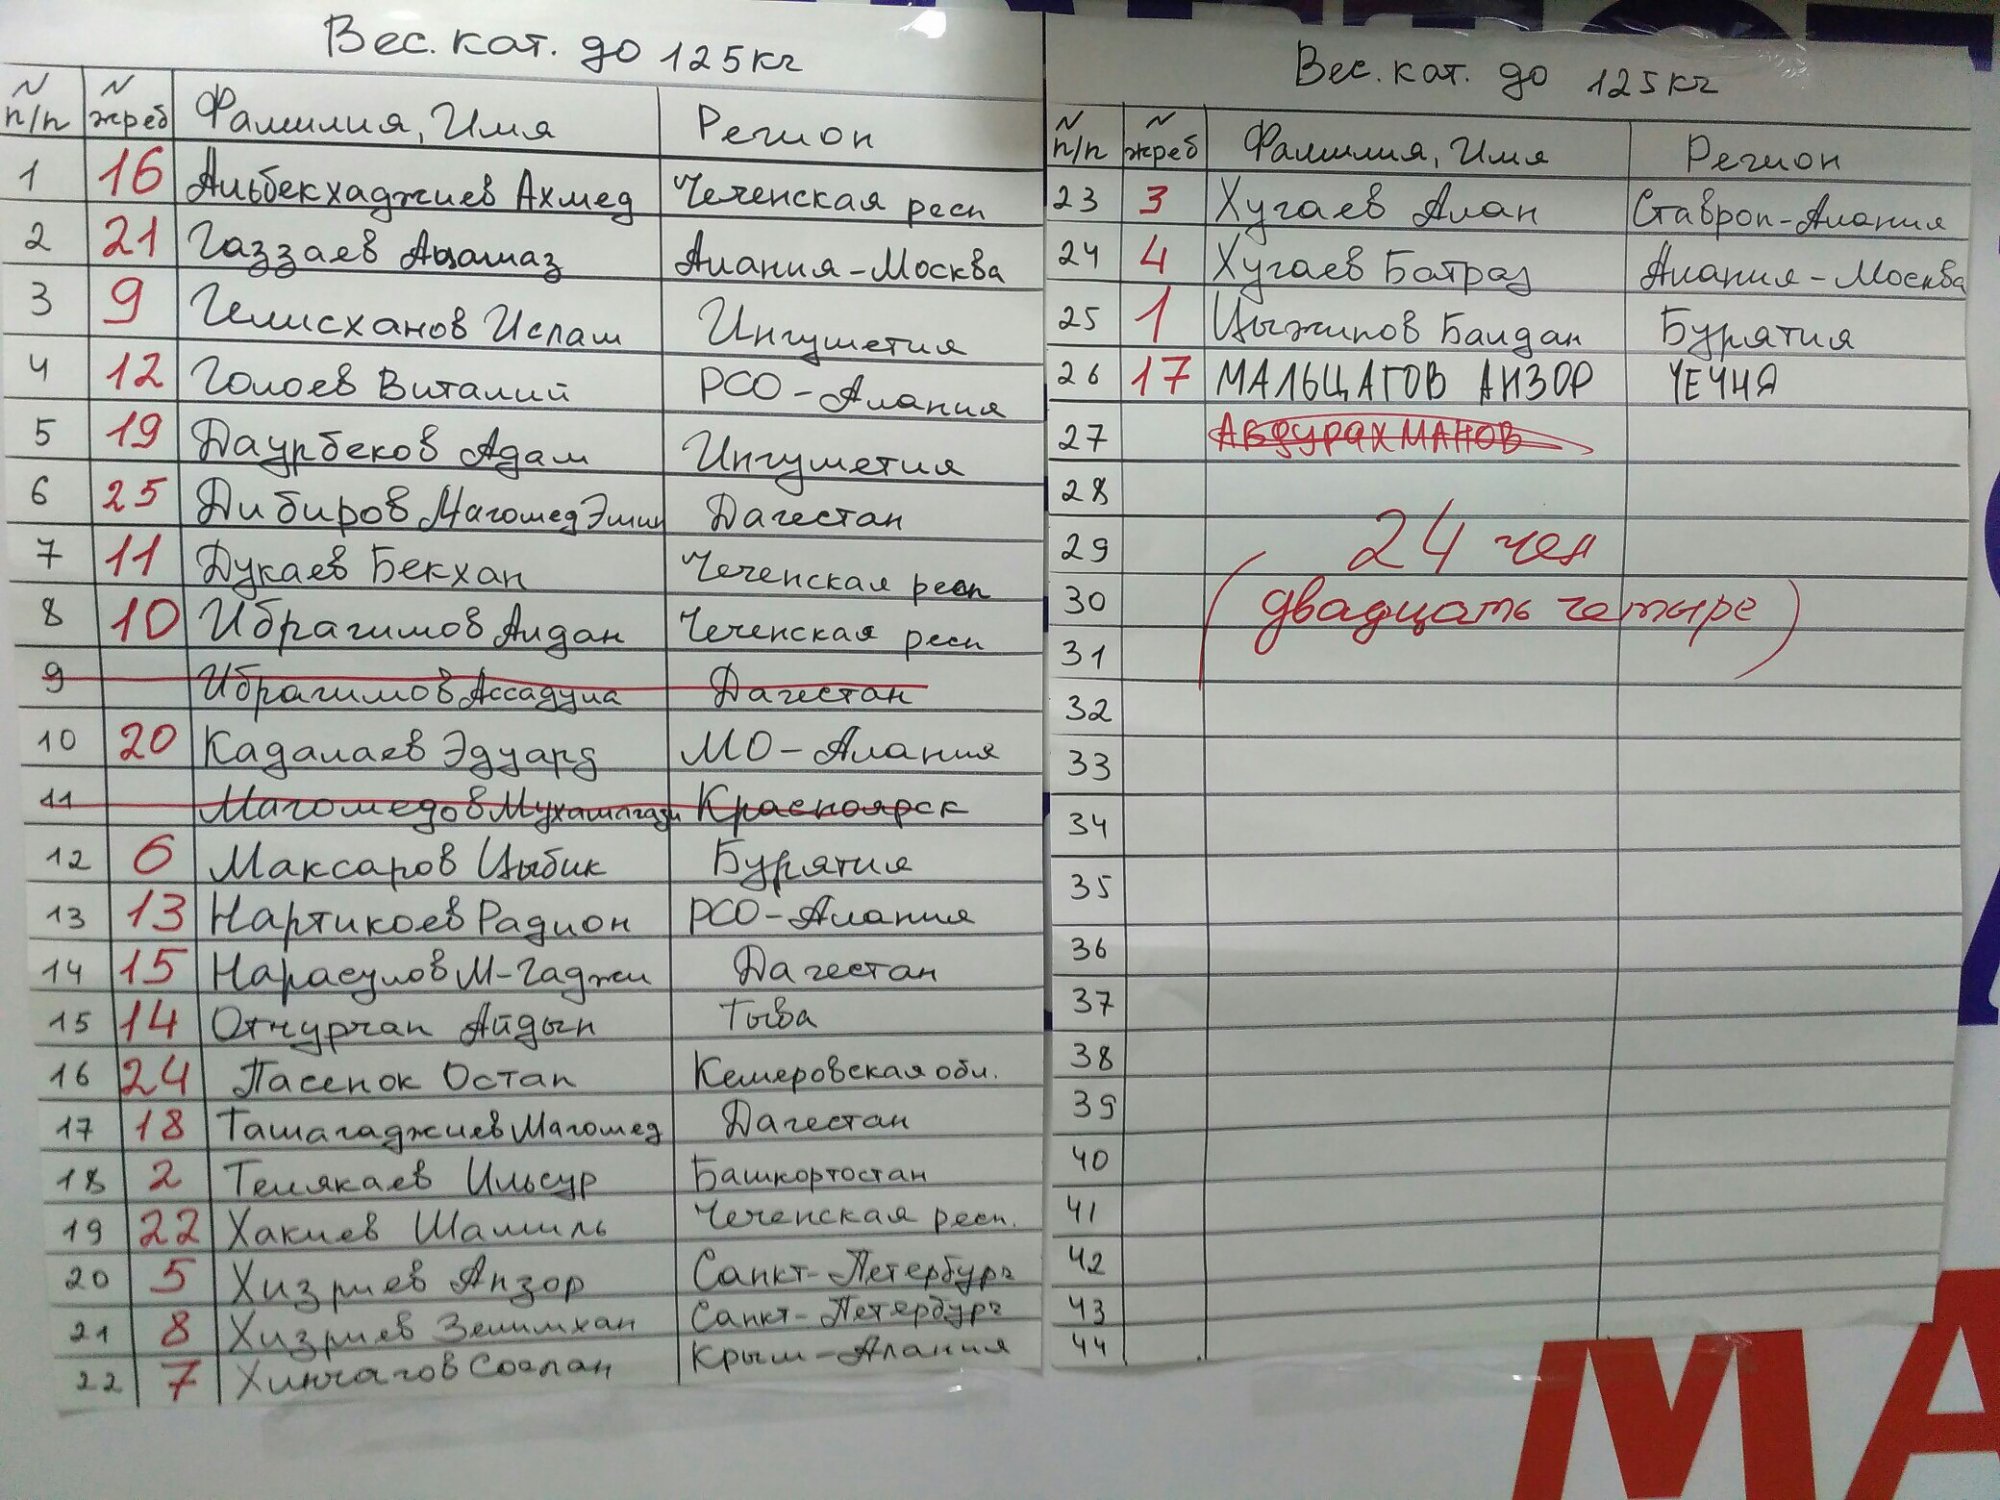 Вес. кат. до 125кг
N п/п N жреб Фамилия, Имя Регион
1 16 Альбекхаджиев Ахмед Чеченская респ
2 21 Газзаев Ацамаз Алания-Москва
3 9 Гелисханов Ислам Ингушетия
4 12 Голоев Виталий РСО-Алания
5 19 Даурбеков Адам Ингушетия
6 25 Дибиров МагомедЭмин Дагестан
7 11 Дукаев Бекхан Чеченская респ
8 10 Ибрагимов Алдан Чеченская респ
9 Ибрагимов Ассадула Дагестан
10 20 Кадалаев Эдуард МО-Алания
11 Магомедов Мухамагази Красноярск
12 6 Максаров Цыбик Бурятия
13 13 Нартикоев Радион РСО-Алания
14 15 Нарасулов М-Гаджи Дагестан
15 14 Отчурчап Айдын Тыва
16 24 Пасенок Остап Кемеровская обл.
17 18 Ташагаджиев Магомед Дагестан
18 2 Телякаев Ильсур Башкортостан
19 22 Хакиев Шамиль Чеченская респ.
20 5 Хизриев Анзор Санкт-Петербург
21 8 Хизриев Зелимхан Санкт-Петербург
22 7 Хинчагов Сослан Крым-Алания
Вес. кат. до 125кг
N п/п N жреб Фамилия, Имя Регион
23 3 Хугаев Алан Ставроп-Алания
24 4 Хугаев Батраз Алания-Москва
25 1 Цыжипов Балдан Бурятия
26 17 МАЛЬЦАГОВ АНЗОР ЧЕЧНЯ
27 АБДУРАХМАНОВ
28
29 24 чел
30 (двадцать четыре)
31
32
33
34
35
36
37
38
39
40
41
42
43
44
МА